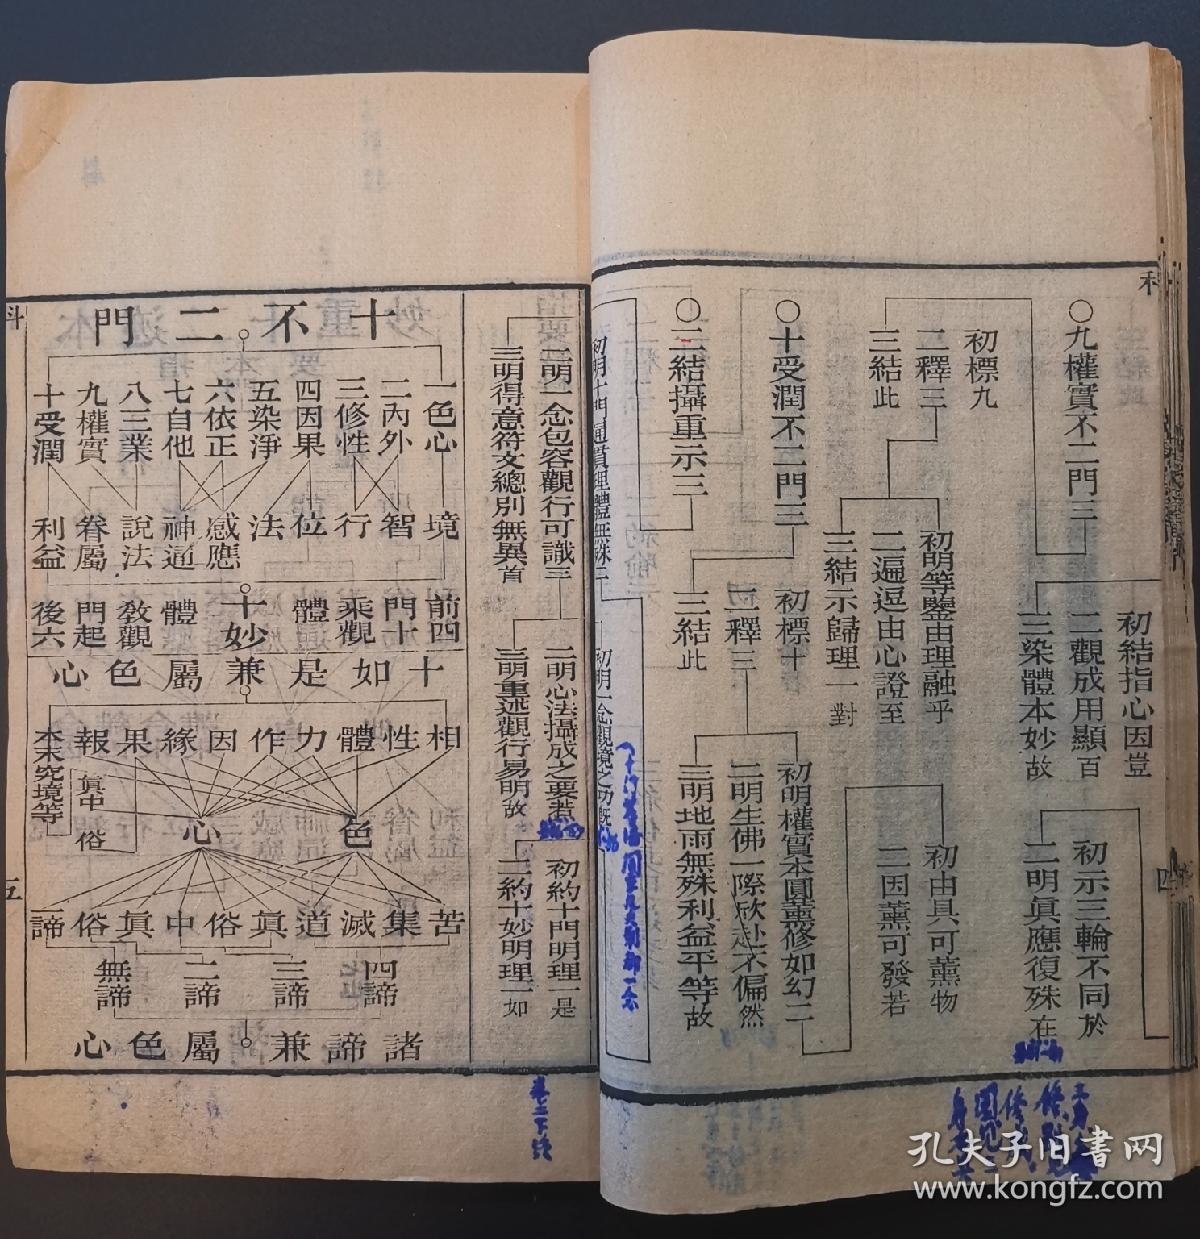 科
初結指心因豈
初示三輪不同於
二明真應復殊在
二觀成用顯百
三染體本妙故
〇九權實不二門三
初標九
二釋三
三結此
初明等鑒由理融乎
二遍逗由心證至
三結示歸理一對
初由具可薰物
二因薰可發若
〇十受潤不二門三
初標十
二釋三
三結此
初明權實本圓薰修如幻二
二明生佛一際欣赴不偏然
三明地雨無殊利益平等故
〇二結攝重示三
初明十門通貫理體無殊二
初明一念觀境之功既
四
二明一念包容觀行可識三
二明心法攝成之要若
初約十門明理一是
三明得意符文總別無異首
三明重述觀行易明故
二約十妙明理一如
卷三下終
科
十不二門
一色心
二內外
三修性
四因果
五染淨
六依正
七自他
八三業
九權實
十受潤
境
智
行
位
法
感應
神通
說法
眷屬
利益
前四
門十
乘觀
體
十妙
體
教觀
門起
後六
十如是兼屬色心
相
性
體
力
作
因
緣
果
報
本末究竟等
真中
俗
色
心
苦
集
滅
道
真
俗
中
真
俗
諦
四諦
三諦
二諦
無諦
諸諦兼屬色心
五
孔夫子旧书网
www.kongfz.com